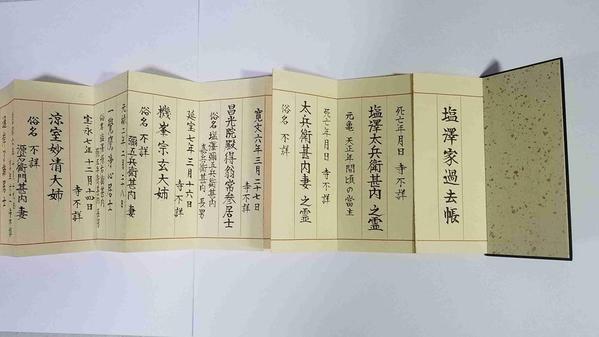 塩澤家過去帳
死亡年月日 寺不詳
塩澤太兵衛甚内之霊
元亀 天正年間頃の當主
死亡年月日 寺不詳
太兵衛甚内妻之霊
俗名 不詳
寛文六年三月二十七日
寺不詳
昌光院殿得翁常参居士
俗名 塩澤彌五兵衛甚内
太兵衛甚内 長男
延宝七年三月十六日
寺不詳
機峯宗玄大姉
彌五兵衛甚内妻
俗名 不詳
元禄二年二月二十八日
宝永七年十二月十四日
寺不詳
涼室妙清大姉
源右衛門甚内妻
俗名 不詳